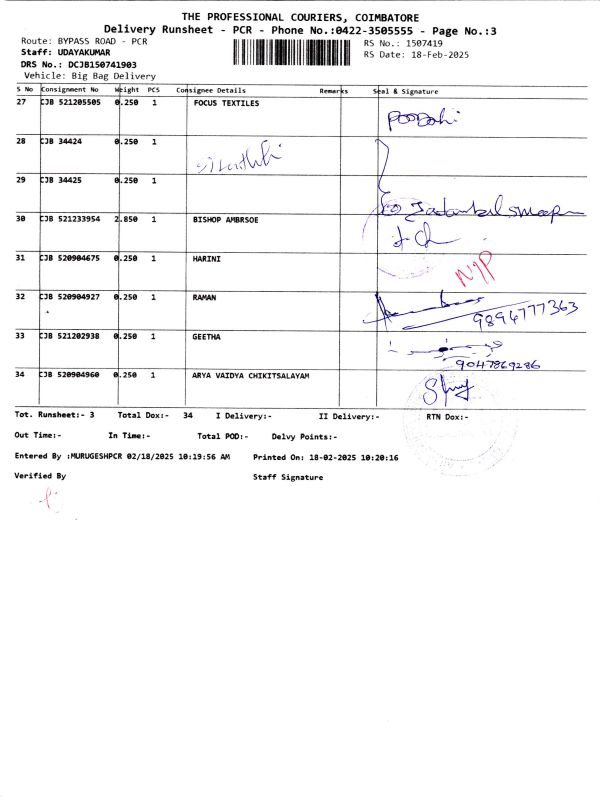 THE PROFESSIONAL COURIERS, COIMBATORE
Delivery Runsheet - PCR - Phone No.:0422-3505555 - Page No.:3
Route: BYPASS ROAD - PCR
RS No.: 1507419
Staff: UDAYAKUMAR
RS Date: 18-Feb-2025
DRS No.: DCJB150741903
Vehicle: Big Bag Delivery
S No Consignment No Weight PCS Consignee Details Remarks Seal & Signature
27 CJB 521205505 0.250 1 FOCUS TEXTILES
28 CJB 34424 0.250 1
29 CJB 34425 0.250 1
30 CJB 521233954 2.850 1 BISHOP AMBRSOE
31 CJB 520904675 0.250 1 HARINI
32 CJB 520904927 0.250 1 RAMAN
9894777363
33 CJB 521202938 0.250 1 GEETHA
9047869286
34 CJB 520904960 0.250 1 ARYA VAIDYA CHIKITSALAYAM
Tot. Runsheet:- 3 Total Dox:- 34 I Delivery:- II Delivery:- RTN Dox:-
Out Time:- In Time:- Total POD:- Delvy Points:-
Entered By :MURUGESHPCR 02/18/2025 10:19:56 AM Printed On: 18-02-2025 10:20:16
Verified By Staff Signature